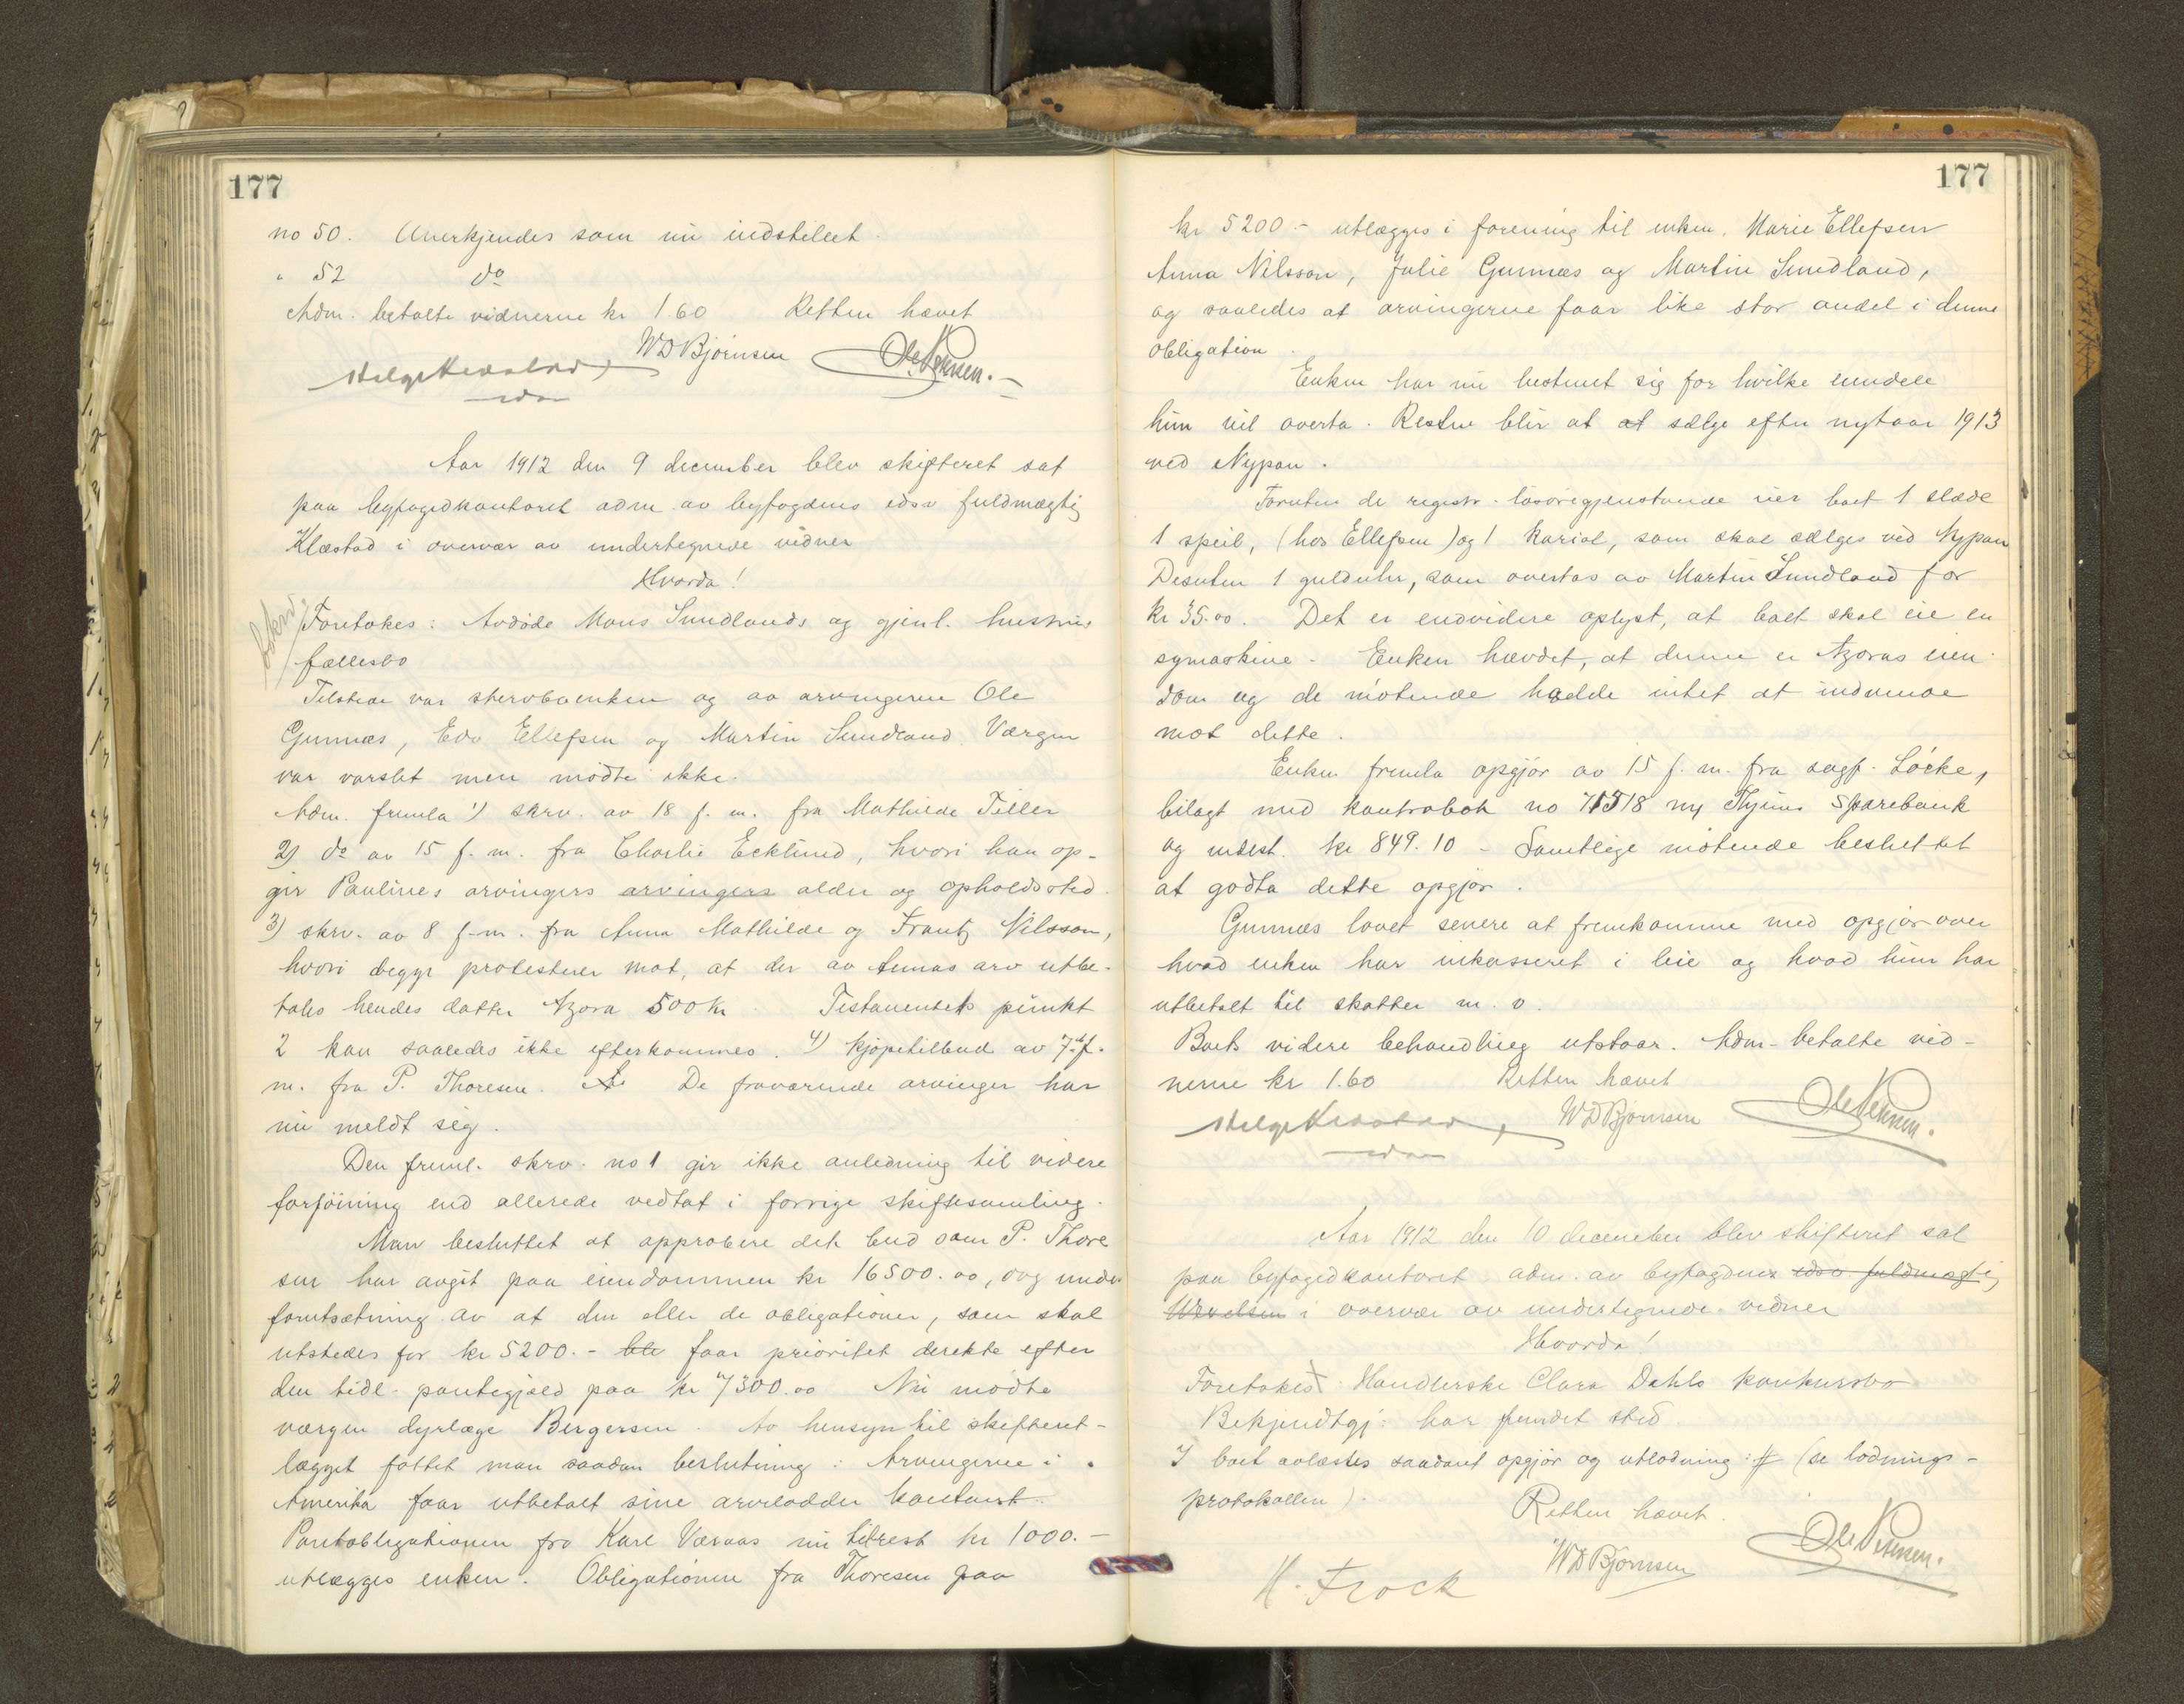 177
no 50. Anerkjendes som nu indstillet
" 52 do
Adm. betalte vidnerne kr 1.60 Retten hævet
WD Bjørnsen Ole Pensen.
edsv

Aar 1912 den 9 december blev skifteret sat
paa byfogedkontoret adm av byfogdens edsv fuldmægtig
Klæstad i overvær av undertegnede vidner
Hvorda!
Foretokes: Avdøde Mons Sundlands og gjenl. hustrus
fællesbo
Tilstede var stervboenken og av arvingerne Ole
Gunnæs, Edv Ellefsen og Martin Sundland. Værgen
var varslet men mødte ikke.
Adm. fremla 1) skrv. av 18 f. m. fra Mathilde Tiller
2) do av 15 f. m. fra Charlie Ecklund, hvori han op-
gir Paulines arvingers arvingers alder og opholdssted.
3) skrv. av 8 f.m. fra Anna Mathilde og Frantz Nilsson,
hvori begge protesterer mot, at der av Annas arv utbe-
tales hendes datter Azora 500 kr. Testamentets punkt
2 kan saaledes ikke efterkommes. 4) kjøpetilbud av 7. f.
m. fra P. Thoresen. De fraværende arvinger har
nu meldt sig.
Den freml. skrv. no 1 gir ikke anledning til videre
forføining end allerede vedtat i forrige skiftesamling.
Man besluttet at approbere det bud som P. Thore
sen har avgit paa eiendommen kr 16500.00, dog under
forutsætning av at den eller de obligationer, som skal
utstedes for kr 5200.- blir faar prioritet direkte efter
den tidl. pantegjæld paa kr 7300.00 Nu mødte
værgen dyrlæge Bergersen. Av hensyn til skifteut-
lægget fattet man saadan beslutning: Arvingerne i
Amerika faar utbetalt sine arvelodder kontant.
Pantobligationen fra Karl Væraas nu tilrest kr 1000.-
utlægges enken. Obligationen fra Thoresen paa

177
kr 5200.- utlægges i forening til enken, Marie Ellefsen
Anna Nilsson, Julie Gunnæs og Martin Sundland,
og saaledes at arvingerne faar like stor andel i denne
obligation.
Enken har nu bestemt sig for hvilke eiendele
hun vil overta. Resten blir at at sælge efter nytaar 1913
ved Nypan.
Foruten de registr. løsøregjenstande eier boet 1 slæde
1 speil, (hos Ellefsen) og 1 Kariol, som skal sælges ved Nypan
Desuten 1 guldur, som overtas av Martin Sundland for
kr 35.00. Det er endvidere oplyst, at boet skal eie en
symaskine. Enken hævdet, at denne er Azoras eien-
dom og de møtende hadde intet at indvende
mot dette.
Enken fremla opgjør av 15 f. m. fra sagf. Løcke,
bilagt med kontrabok no 71518 ny Thjems Sparebank
og indest. kr 849.10 - Samtlige møtende besluttet
at godta dette opgjør.
Gunnæs lovet senere at fremkomme med opgjør over
hvad enken har inkasseret i leie og hvad hun har
utbetalt til skatter m. v.
Boets videre behandling utstaar. Adm. betalte vid-
nerne kr 1.60 Retten hævet
WD Bjørnsen Ole Pensen.
edsv

Aar 1912 den 10 december blev skifteret sat
paa byfogedkontoret adm. av byfogden edsv fuldmægtig
i overvær av undertegnede vidner
Hvorda!
Foretokes: Handlerske Clara Dahls konkursbo
Bekjendtgj: har fundet sted
I boet avlæstes saadant opgjør og utlodning: # (se lodnings-
protokollen).
Retten hævet.
H. Frock WD Bjørnsen Ole Pensen.